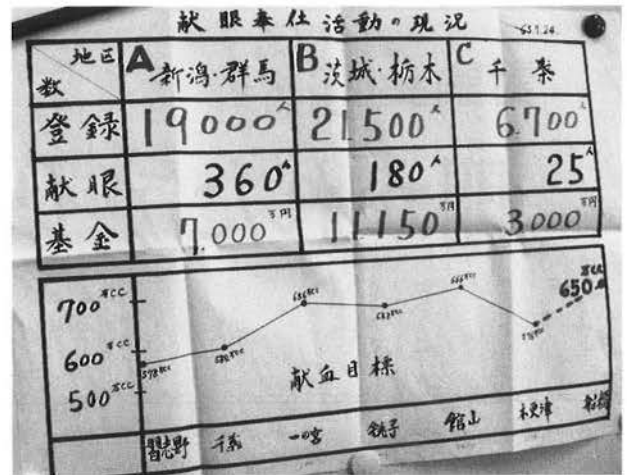 献眼奉仕活動の現況
地区 数 A新潟・群馬 B茨城・栃木 C千葉
登録 19000人 21.500人 6.700人
献眼 360人 180人 25人
基金 7.000万円 11.150万円 3.000万円
700万CC
600万CC
500万CC
650万CC
献血目標
習志野 千葉 一の宮 銚子 館山 木更津 船橋